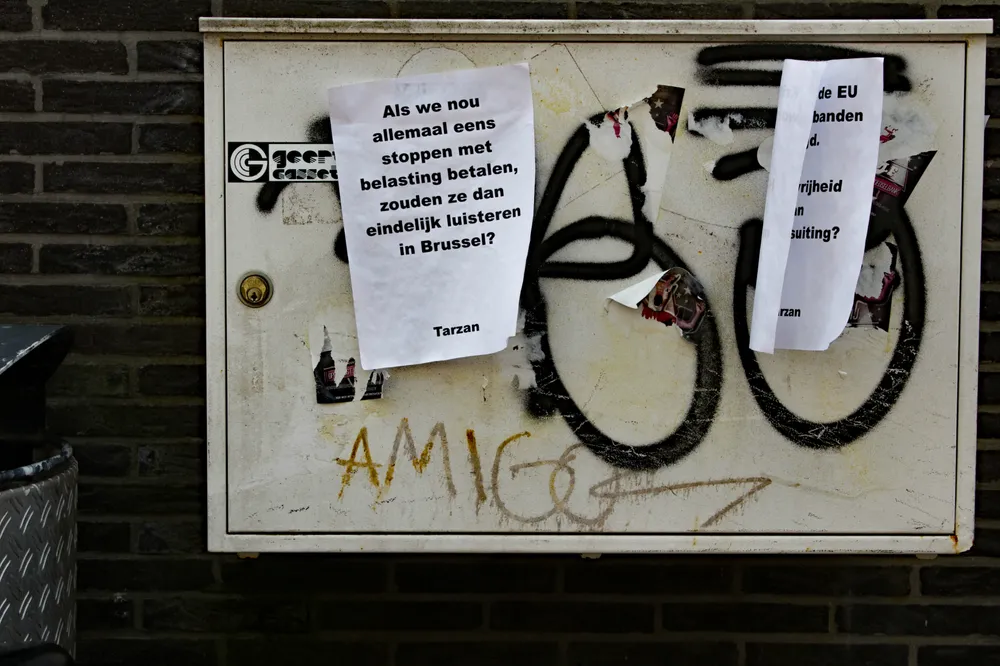 Als we nou
allemaal eens
stoppen met
belasting betalen,
zouden ze dan
eindelijk luisteren
in Brussel?
Tarzan
geer
casse
de EU
banden
d.
rijheid
n
suiting?
rzan
AMIGO